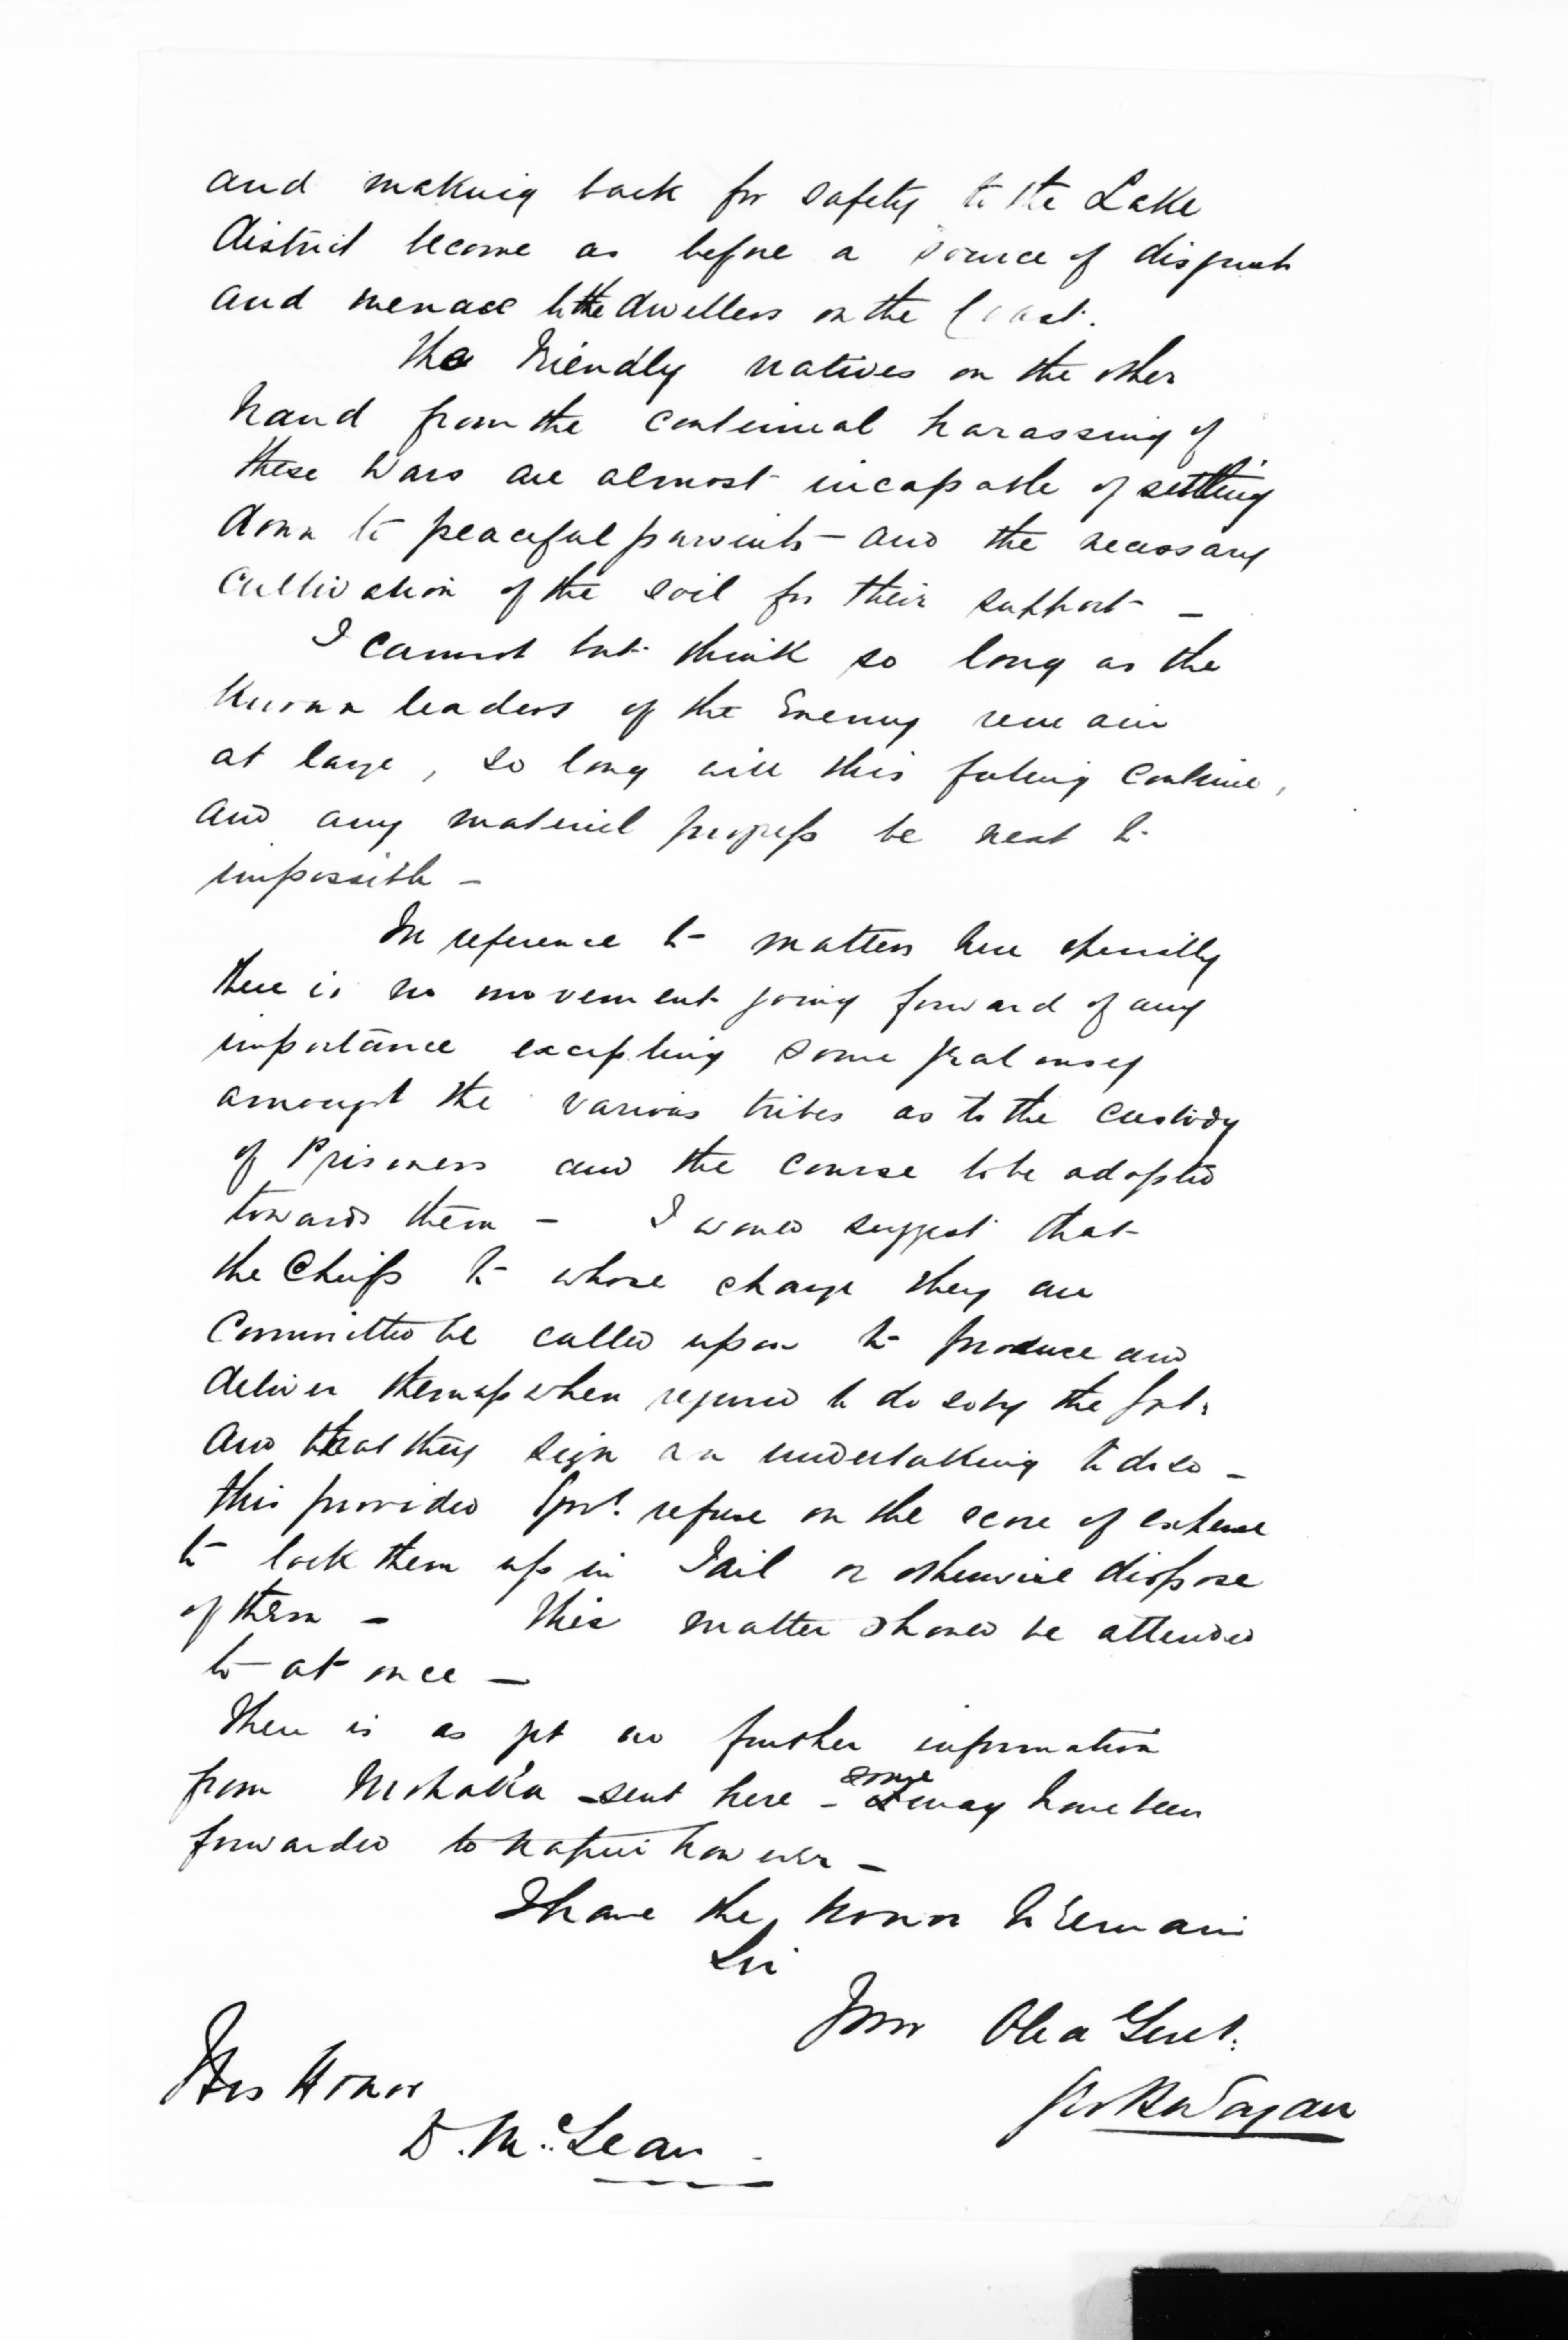 and making back for safety to the Lake
District become as before a source of disquiet
and menace to the dwellers on the Coast.
The Friendly natives on the other
hand from the continual harassing of
these Wars are almost incapable of settling
down to peaceful pursuits - and the necessary
cultivation of the soil for their support -
I cannot but think so long as the
known leaders of the Enemy remain
at large, so long will this feeling continue,
and any material progress be next to
impossible -
In reference to matters here specially
there is no movement going forward of any
importance excepting some jealousy
amongst the various tribes as to the custody
of Prisoners and the course to be adopted
towards them - I would suggest that
the Chiefs to whose charge they are
Committed be called upon to produce and
deliver them up when required to do so by the Govt.
and that they sign an undertaking to do so -
this provided Govt. refuse on the score of expense
to lock them up in Jail or otherwise dispose
of them - This matter should be attended
to at once -
There is as yet no further information
from Mohaka sent here - some may have been
forwarded to Napier however -
I have the honor to remain
Sir
Your Obed Servt.
His Honor
D. McLean